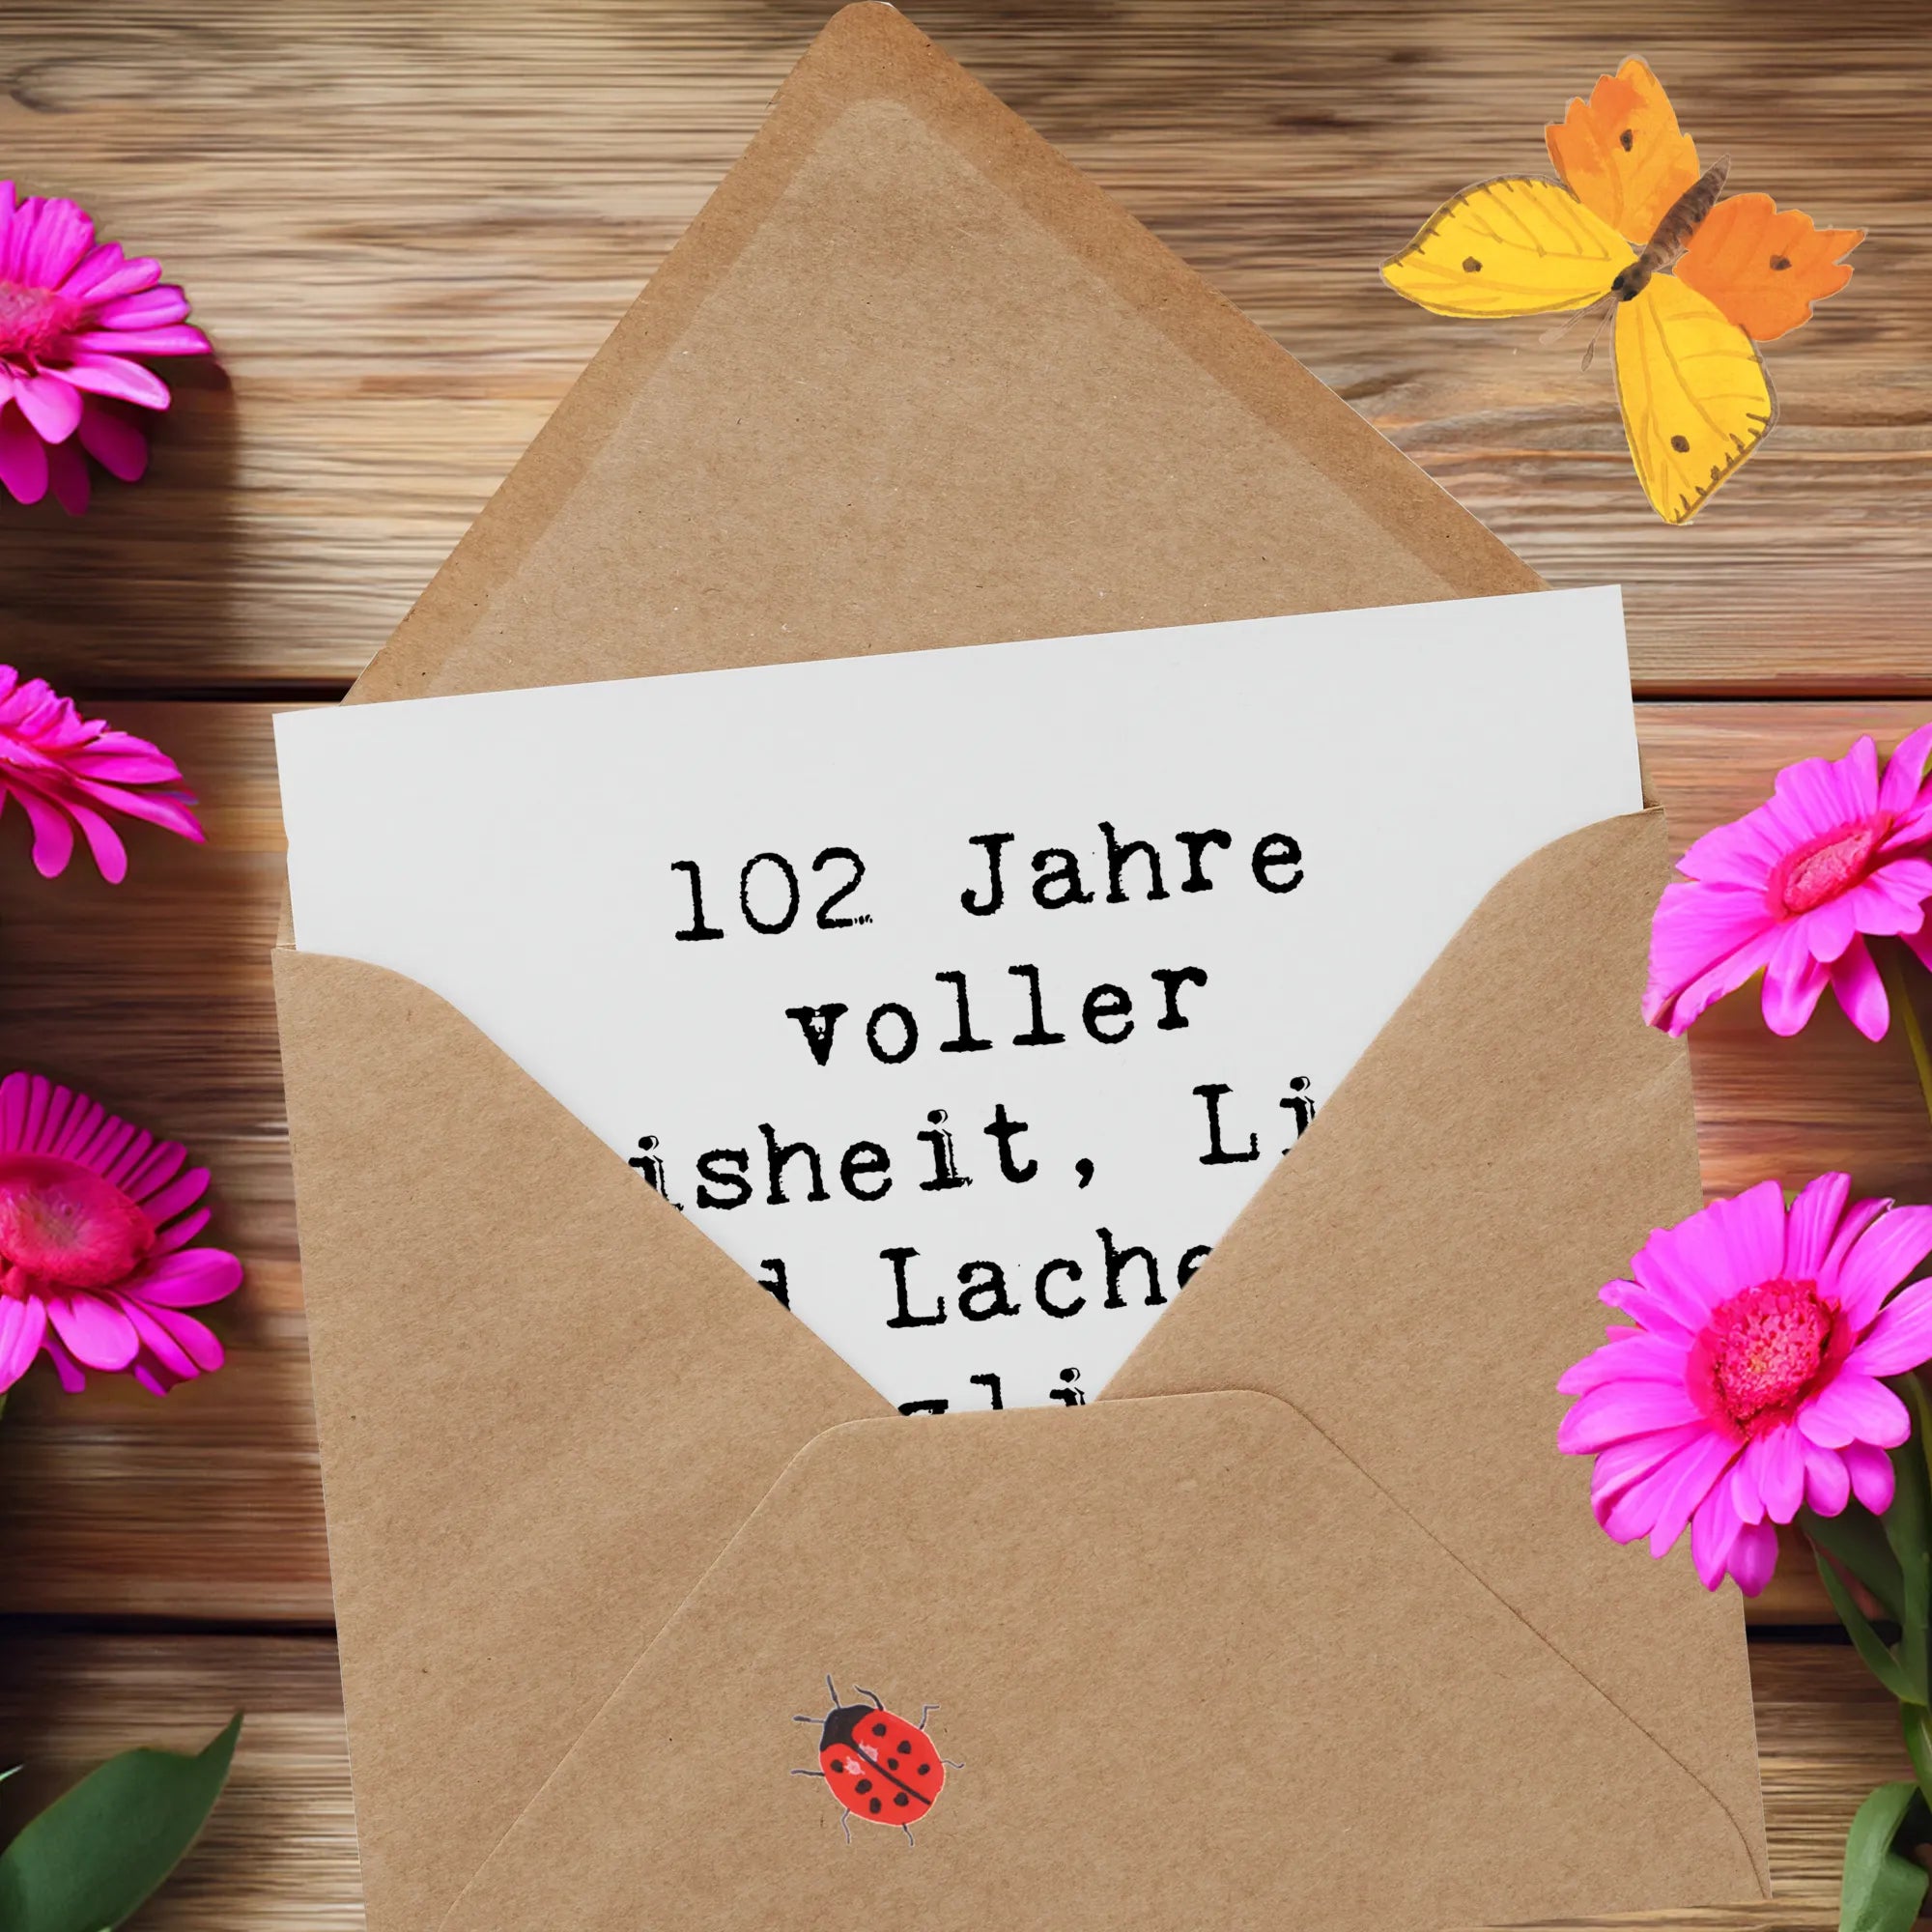 102 Jahre
voller
isheit, Li
d Lache
zli